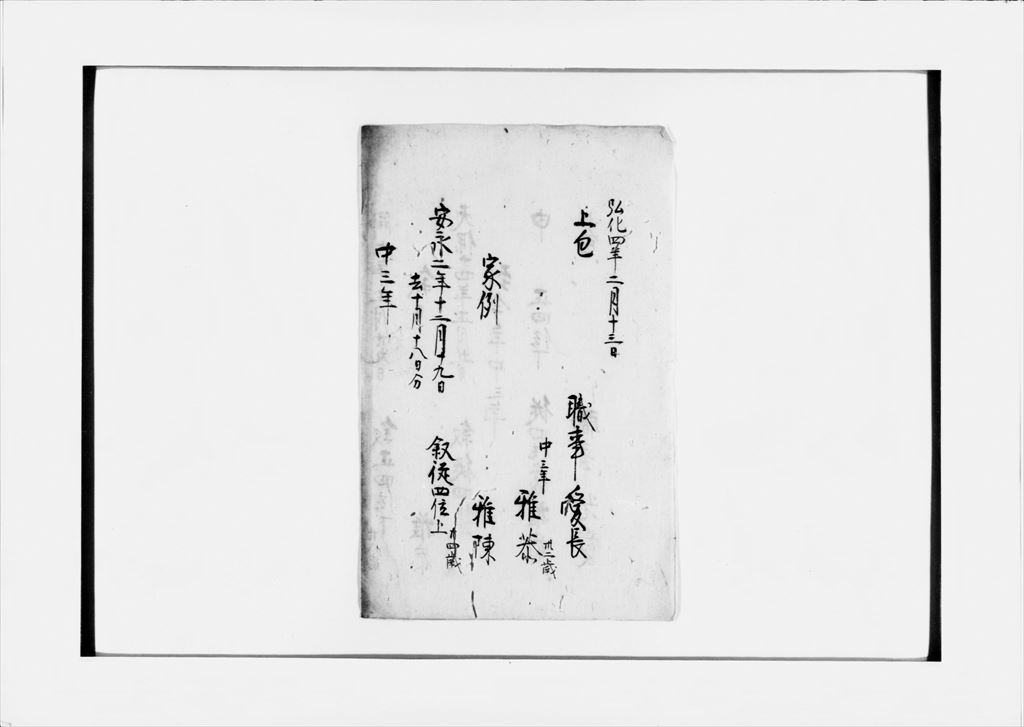 弘化四年二月十三日
上包
職事愛長
中三年
雅恭
卅二歳
家例
雅陳
安永二年十二月十九日
去十月十八日分
叙従四位上
卅四歳
中三年